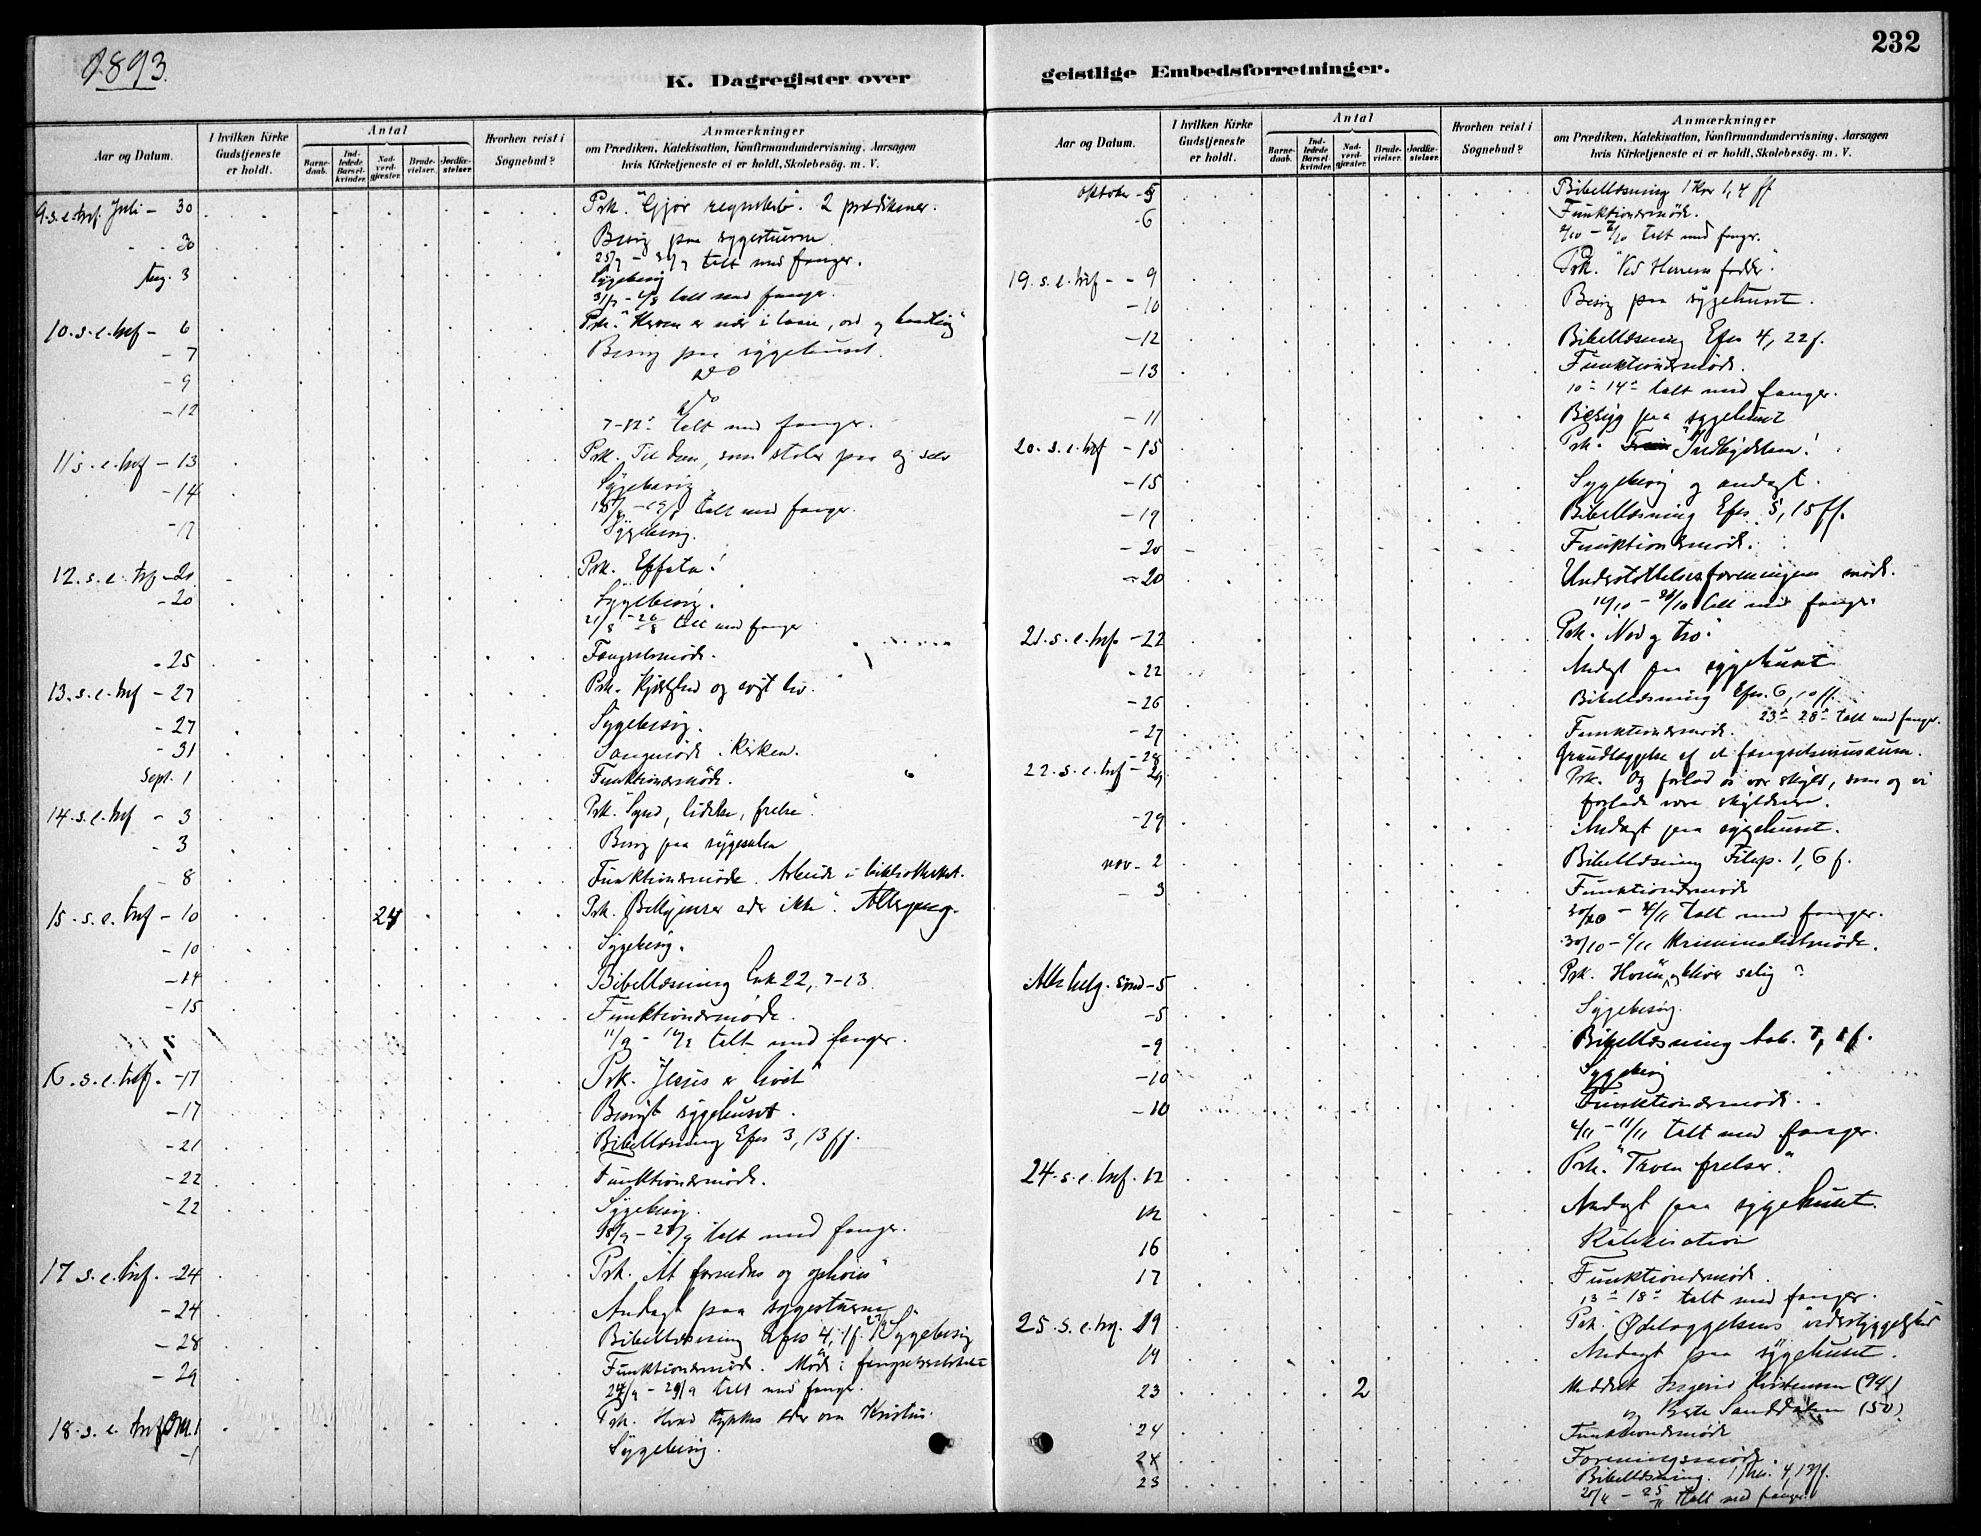 1893.
K. Dagregister over
Aar og Datum.
I hvilken Kirke Gudstjeneste er holdt.
Antal
Barnedaab.
Indledede Barselkvinder.
Nadverdgjæster.
Brudevielser.
Jordfæstelser.
Hvorhen reist i Sognebud?
Anmærkninger
om Prædiken, Katekisation, Konfirmandundervisning, Aarsagen
hvis Kirketjeneste ei er holdt, Skolebesøg. m. V.
9. s. e. tref. Juli - 30 Prk. "Gjør regnskab". 2 prædikener.
- 30 Besøg paa sygestuerne.
talt med fanger.
Aug. 3 Sygebesøg
talt med fanger.
10. s. e. tref - 6 Prk.
- 7 Besøg paa sygehuset.
- 9 do
- 12 do
7-12 talt med fanger.
11 s. e. tref - 13 Prk. Til dem, som stoler paa sig selv
- 14 Sygebesøg
talt med fanger.
- 17 Sygebesøg.
12. s. e. tref - 20 Prk. Effata!
- 20 Sygebesøg.
21/8 - 26/8 talt med fanger
- 25 Fængselsmøde.
13. s. e. tref - 27 Prk. Kjærlighed og evigt liv.
- 27 Sygebesøg.
- 31 Sangmøde i kirken.
Sept. 1 Funktionærmøde.
14. s. e. tref - 3 Prk. "Synd, lidelse, frelse".
- 3 Besøg paa sygesalen
- 8 Funktionærmøde. Arbeide i bibliotheket.
15. s. e. tref - 10 24 Prk. Bekymrer eder ikke". Altergang.
- 10 Sygebesøg.
- 14 Bibellæsning Luk 22, 7-13.
- 15 Funktionærmøde.
talt med fanger.
16. s. e. tref. - 17 Prk. "Jesus er livet"
- 17 Besøgt sygehuset.
- 21 Bibellæsning Efes 3, 13 ff.
- 22 Funktionærmøde.
- 22 Sygebesøg.
talt med fanger.
17 s. e. tref. - 24 Prk. At fornedres og ophøies"
- 24 Andagt paa sygestuerne
- 28 Bibellæsning Efes 4, 1f. Sygebesøg
- 29 Funktionærmøde. Møde i fængselsselskabet
talt med fanger.
18. s. e. tref Okt. 1 Prk. Hvad tykkes eder om Kristus.
- 1 Sygebesøg.
232
geistlige Embedsforretninger.
Aar og Datum.
I hvilken Kirke Gudstjeneste er holdt.
Antal
Barnedaab.
Indledede Barselkvinder.
Nadverdgjæster.
Brudevielser.
Jordfæstelser.
Hvorhen reist i Sognebud?
Anmærkninger
om Prædiken, Katekisation, Konfirmandundervisning, Aarsagen
hvis Kirketjeneste ei er holdt, Skolebesøg. m. V.
oktober - 5 Bibellæsning 1 Kor 1, 4 ff
- 6 Funktionærmøde.
talt med fanger.
19. s. e. tref - - 9 Prk. "Ved Herrens fødder".
- 10 Besøg paa sygehuset.
- 12 Bibellæsning Efes 4, 22 f.
- 13 Funktionærmøde.
10 - 14 talt med fanger.
- 11 Besøg paa sygehuset
20. s. e. tref - 15 Prk. "Indbydelsen!
- 15 Sygebesøg og andagt.
- 19 Bibellæsning Efes 5, 15 ff.
- 20 Funktionærmøde.
- 20 Understøttelsesforeningens møde.
talt med fanger.
21. s. e. tref. - 22 Prk. "Nød og tro".
- 22 Andagt paa sygehuset
- 26 Bibellæsning Efes. 6, 10 ff.
23 - 28 talt med fanger.
- 27 Funktionærmøde.
- 28 Grundlæggelse af et fængselsmusæum.
22. s. e. tref - 29 Prk. Og forlad os vor skyld, som og vi
forlade vore skyldnere.
- 29 Andagt paa sygehuset.
nov - 2 Bibellæsning Filip. 1, 6 f.
- 3 Funktionærmøde
talt med fanger.
Kriminalistmøde.
Alle helg. sønd - 5 Prk. Hvem bliver salig?
- 5 Sygebesøg.
- 9 Bibellæsning Aab. 7, 1 f.
- 10 Sygebesøg
- 10 Funktionærmøde.
talt med fanger.
24. s. e. tref. 12 Prk. "Troen frelser."
12 Andagt paa sygehuset.
16 Katekisation
17 Funktionærmøde.
13 - 18 talt med fanger.
25. s. e. tref. 19 Prk. Ødelæggelsens vederstyggelighed
19 Andagt paa sygehuset.
23 2 Meddelt Ingerid Kristensen (94)
og Berte Sanddalen (50)
24 Funktionærmøde
24 Foreningsmøde.
23 Bibellæsning. 4, 13ff.
talt med fanger.